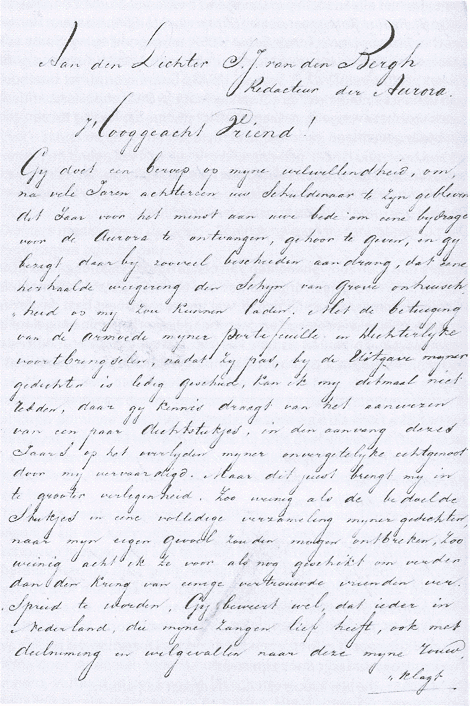 Aan den Dichter S. J. van den Bergh
Redacteur der Aurora.
Hooggeacht Vriend!
Gy doet een beroep op myne welwillendheid, om,
na vele Jaren achtereen uw Schuldenaar te zyn gebleven
dit Jaar voor het minst aan uwe bede om eene bydrage
voor de Aurora te ontvangen, gehoor te geven, en gy
bezigt daarby zooveel bescheiden aandrang, dat eene
herhaalde weigering den Schyn van grove onheusch
heid op my zou kunnen laden. Met de betuiging
van de armoede myner portefeuille in Dichterlyke
voortbrengselen, nadat zy pas, by de Uitgave myner
gedichten is ledig geschud, kan ik my ditmaal niet
redden, daar gy kennis draagt van het aanwezen
van een paar Dichtstukjes, in den aanvang dezes
Jaars op het overlyden myner onvergetelyke echtgenoot
door my vervaardigd. Maar dit juist brengt my in
te grooter verlegenheid. Zoo weinig als de bedoelde
Stukjes in eene volledige verzameling myner gedichten
naar myn eigen gevoel zouden mogen ontbreken, zoo
weinig acht ik ze voor als nog geschikt om verder
dan den Kring van eenige vertrouwde vrienden ver
Spreid te worden. Gy beweert wel, dat ieder in
Nederland, die myne Zangen lief heeft, ook met
deelneming en welgevallen naar deze myne rouw
klagt